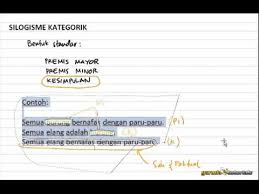 SILOGISME KATEGORIK
Bentuk standar:
PREMIS MAYOR
PREMIS MINOR
KESIMPULAN
Contoh:
Semua burung bernafas dengan paru-paru. (P1)
Semua elang adalah
Semua elang bernafas dengan paru-paru. (K)